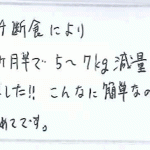 断食により
ヶ月半で5〜7kg減量
した!! こんなに簡単なの
めてです。